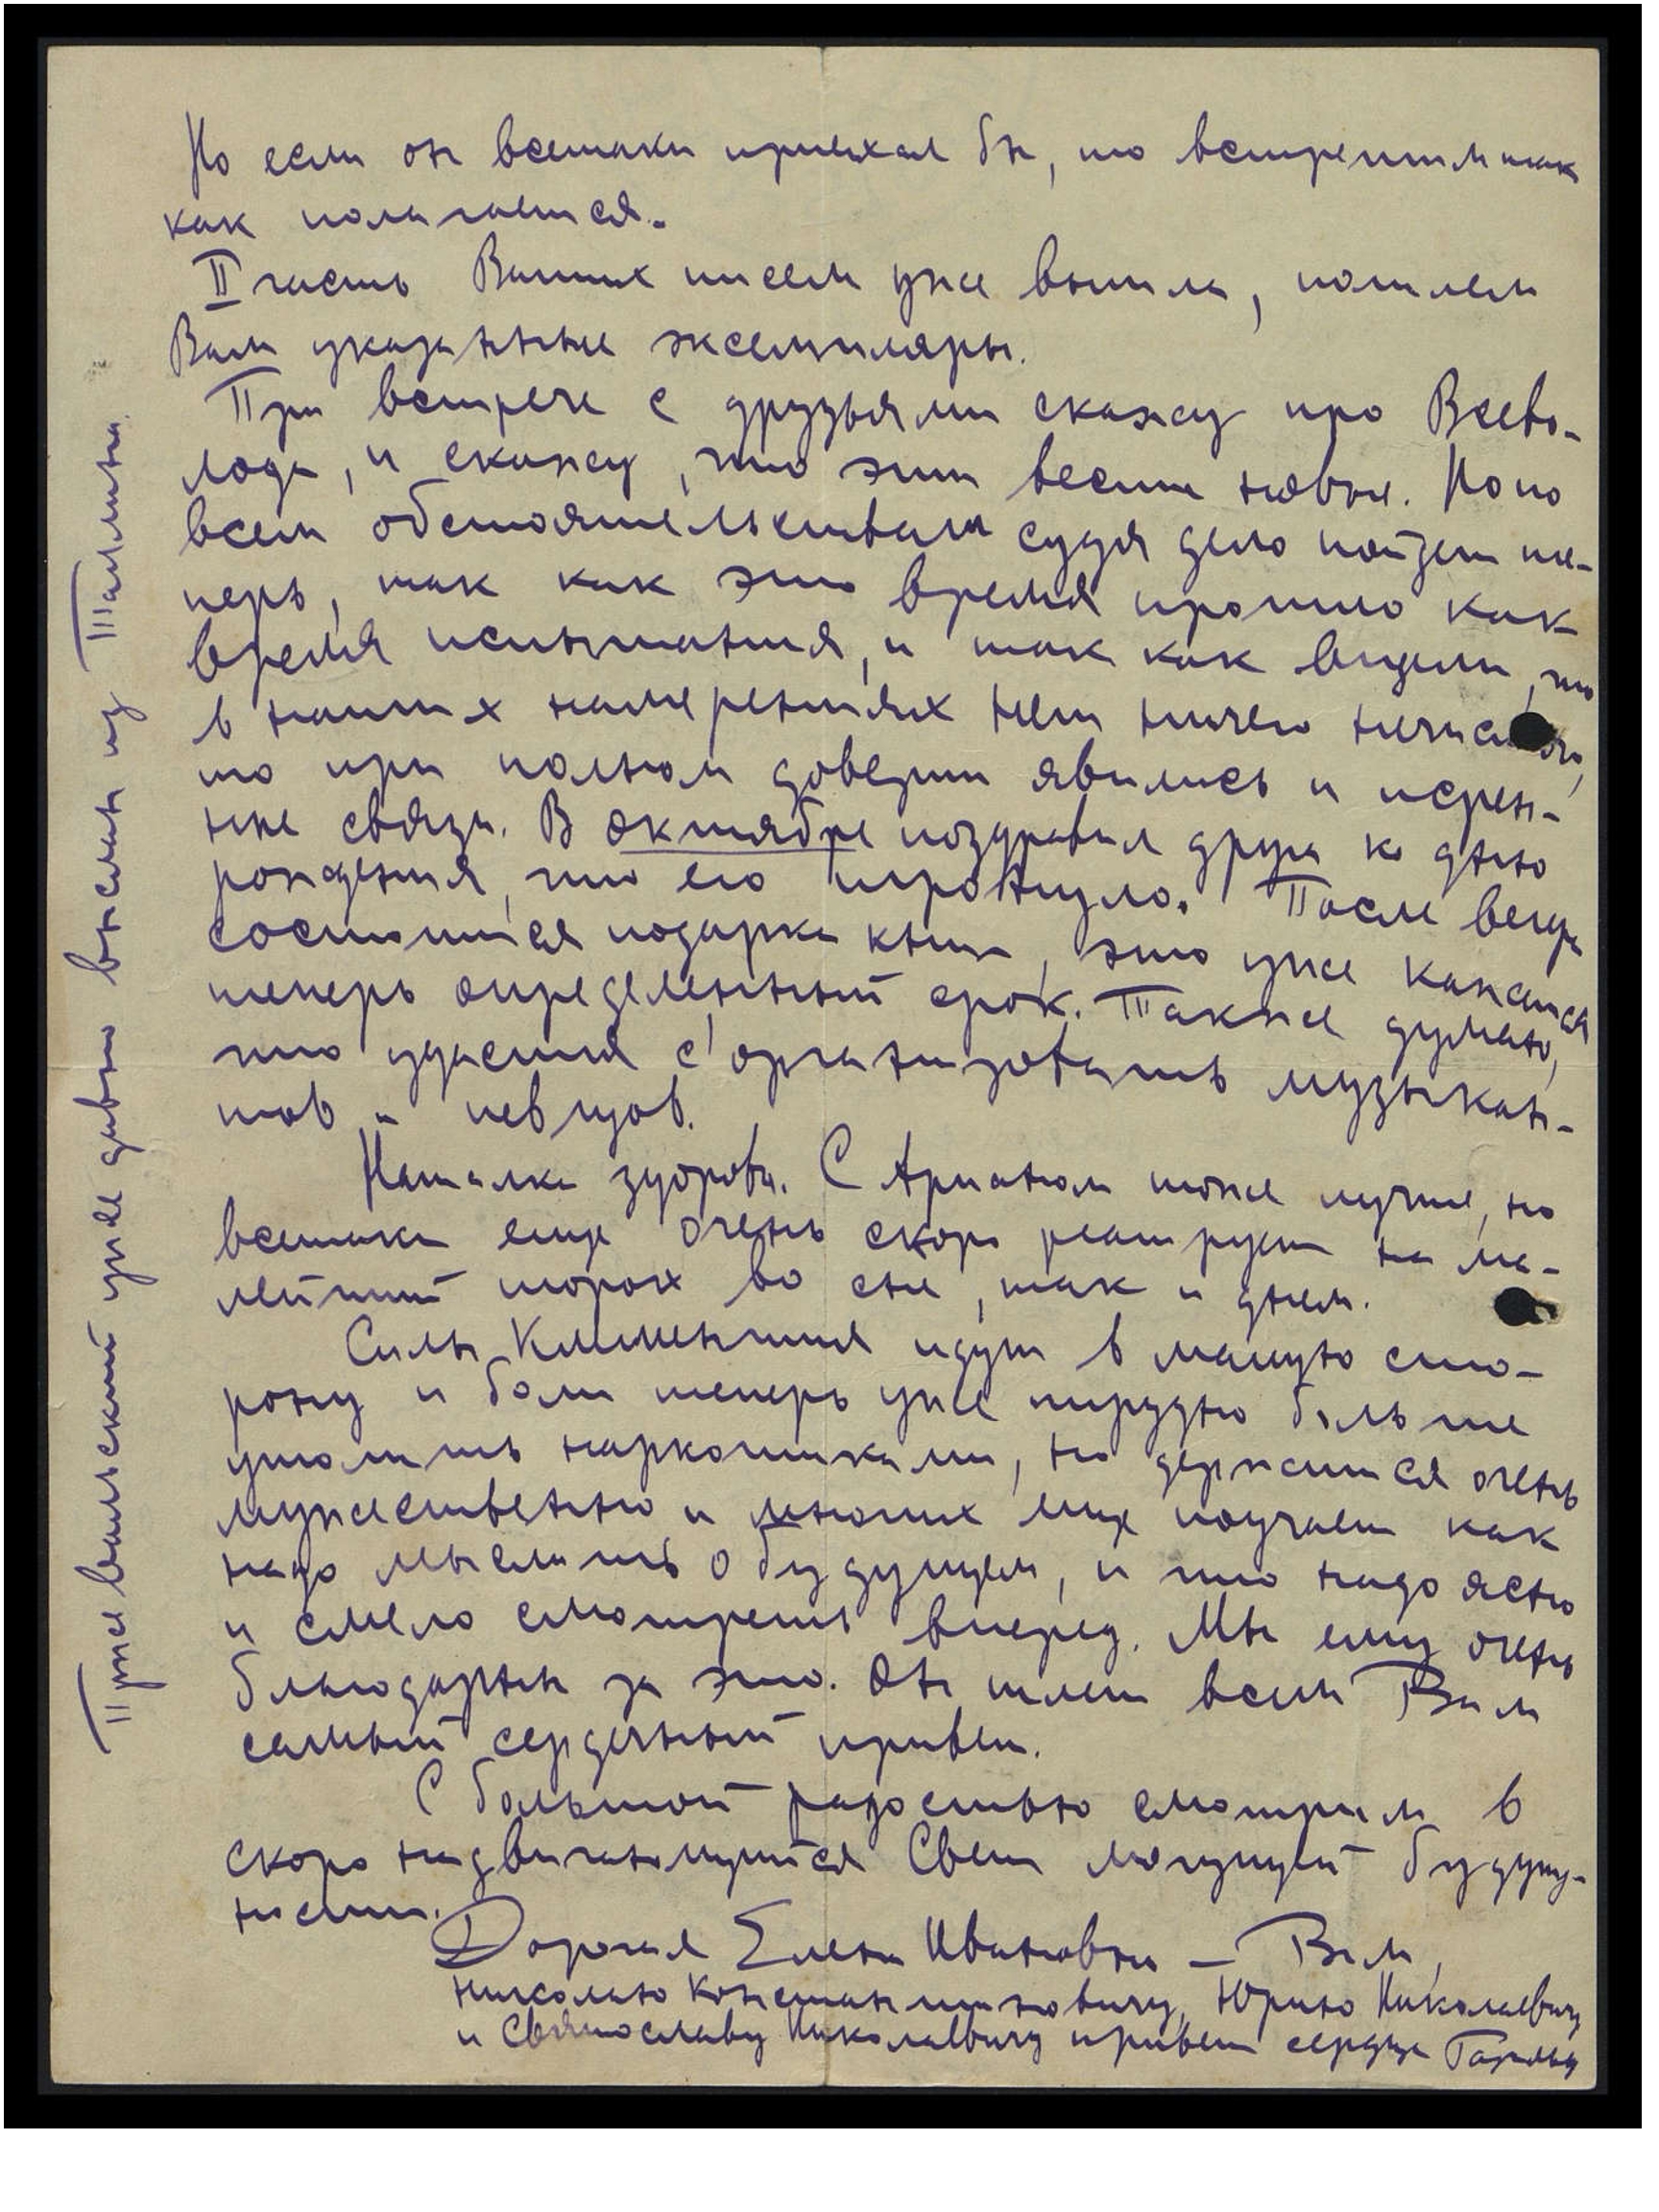 Но если он всетаки приехал бы, то встретим так
как полагается.
II часть Ваших писем уже вышла, пошлем
Вам указанные экземпляры.
При встрече с друзьями скажу про Всево-
лода, и скажу, что эти вести новые. Но по
всем обстоятельствам судя дело пойдет те-
перь, так как это время прошло как
время испытания, и так как видели, что
в наших намерениях нет ничего
то при полном доверии явились и искрен-
ние связи. В октябре поздравил друга ко дню
рождения, что его тронуло. После
подарка книг, это уже кажется
теперь определенный срок. Также думаю,
что удастся с'организовать музыкан-
тов и певцов.
Наталка здорова. С Арианом тоже лучше, но
всетаки еще очень скоро реагирует на ма-
лейший шорох во сне, так и днем.
Силы Климентия идут в меньшую сто-
рону и боли теперь уже трудно больше
утолить наркотиками, но держится очень
мужественно и многих еще поучает как
надо мыслить о будущем, и что надо ясно
и смело смотреть вперед. Мы ему очень
благодарны за это. Он шлет всем Вам
самый сердечный привет.
С большой радостью смотрим в
скоро надвигающийся Свет могущей будущ-
ности.
Дорогая Елена Ивановна – Вам,
Николаю Константиновичу, Юрию Николаевичу
и Святославу Николаевичу привет сердца Гаральд
Туревальский уже давно выслан из Таллина.